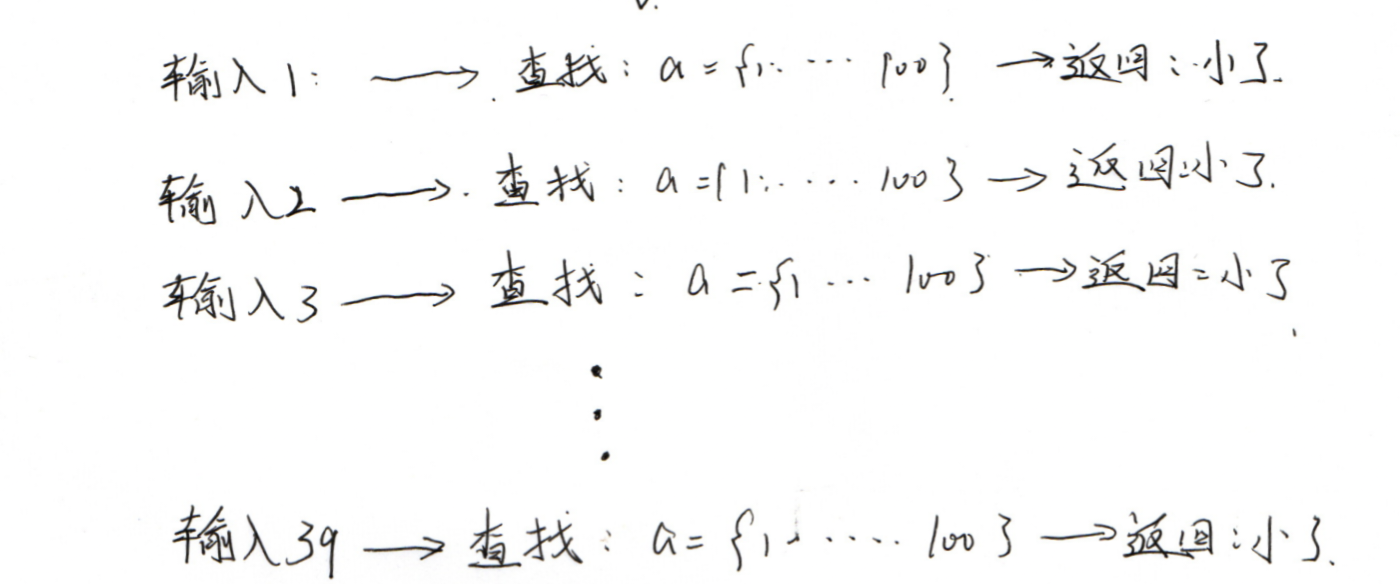 输入1: → 查找: a={1: ... 100} → 返回:小了.
输入2 → 查找: a={1: ..... 100} → 返回:小了.
输入3 → 查找: a={1 ... 100} → 返回:小了
输入39 → 查找: a={1 ..... 100} → 返回:小了.